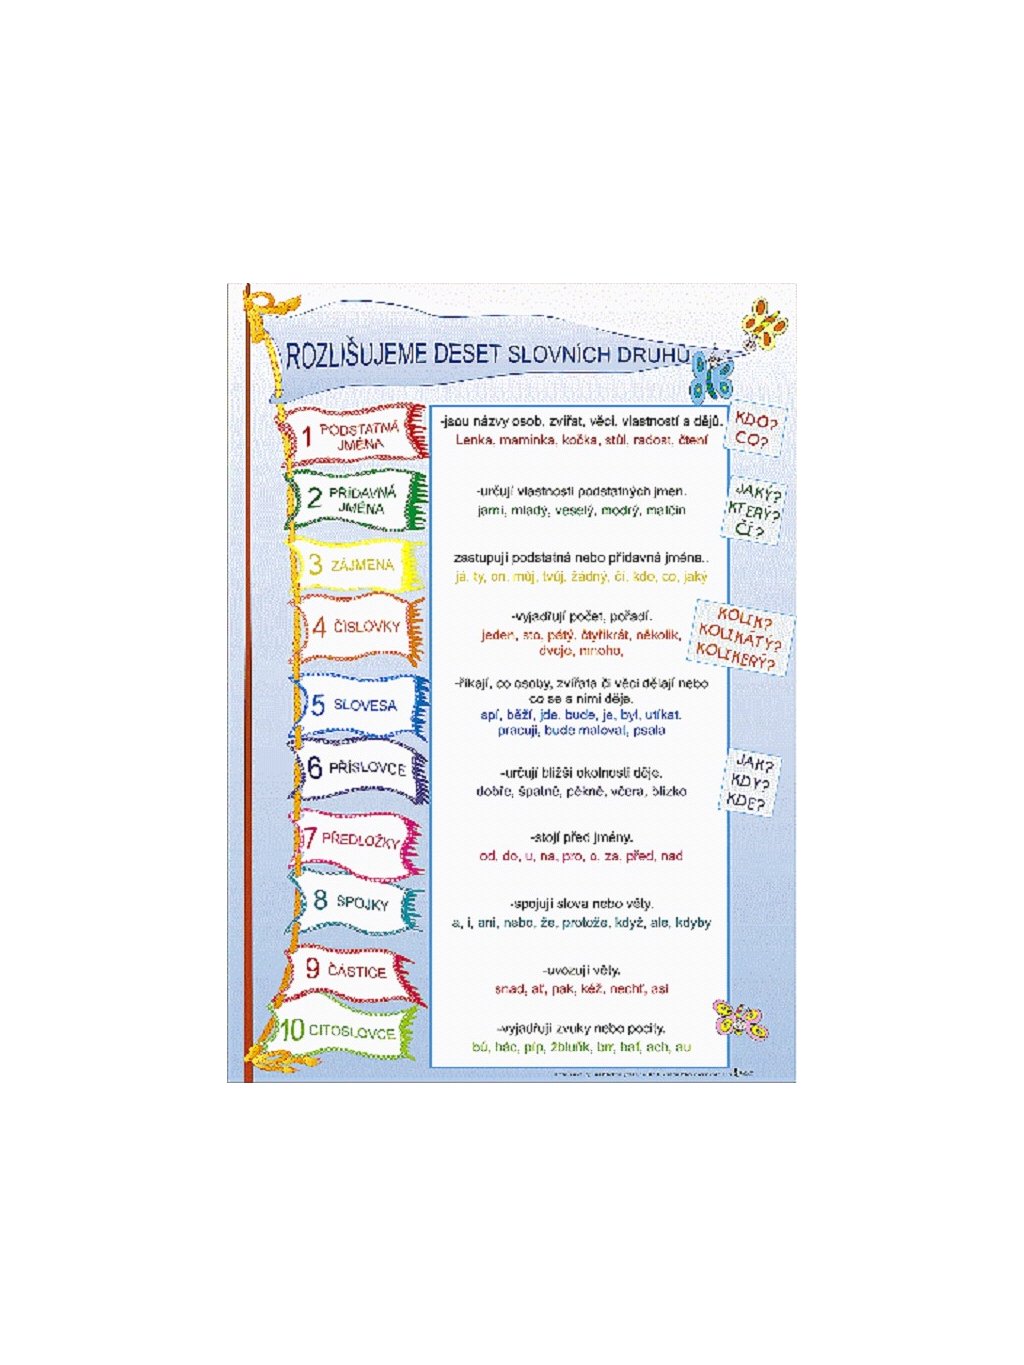 ROZLIŠUJEME DESET SLOVNÍCH DRUHŮ
1 PODSTATNÁ
JMÉNA
-jsou názvy osob, zvířat, věcí, vlastností a dějů.
Lenka, maminka, kočka, stůl, radost, čtení
KDO?
CO?
2 PŘÍDAVNÁ
JMÉNA
-určují vlastnosti podstatných jmen.
jarní, mladý, veselý, modrý, matčin
JAKÝ?
KTERÝ?
ČÍ?
3 ZÁJMENA
zastupují podstatná nebo přídavná jména..
já, ty, on, můj, tvůj, žádný, čí, kdo, co, jaký
4 ČÍSLOVKY
-vyjadřují počet, pořadí.
jeden, sto, pátý, čtyřikrát, několik,
dvoje, mnoho,
KOLIK?
KOLIKÁTÝ?
KOLIKERÝ?
5 SLOVESA
-říkají, co osoby, zvířata či věci dělají nebo
co se s nimi děje.
spí, běží, jde, bude, je, byl, utíkat,
pracuji, bude malovat, psala
6 PŘÍSLOVCE
-určují bližší okolnosti děje.
dobře, špatně, pěkně, včera, blízko
JAK?
KDY?
KDE?
7 PŘEDLOŽKY
-stojí před jmény.
od, do, u, na, pro, o, za, před, nad
8 SPOJKY
-spojují slova nebo věty.
a, i, ani, nebo, že, protože, když, ale, kdyby
9 ČÁSTICE
-uvozují věty.
snad, ať, pak, kéž, nechť, asi
10 CITOSLOVCE
-vyjadřují zvuky nebo pocity.
bú, bác, píp, žbluňk, brr, haf, ach, au